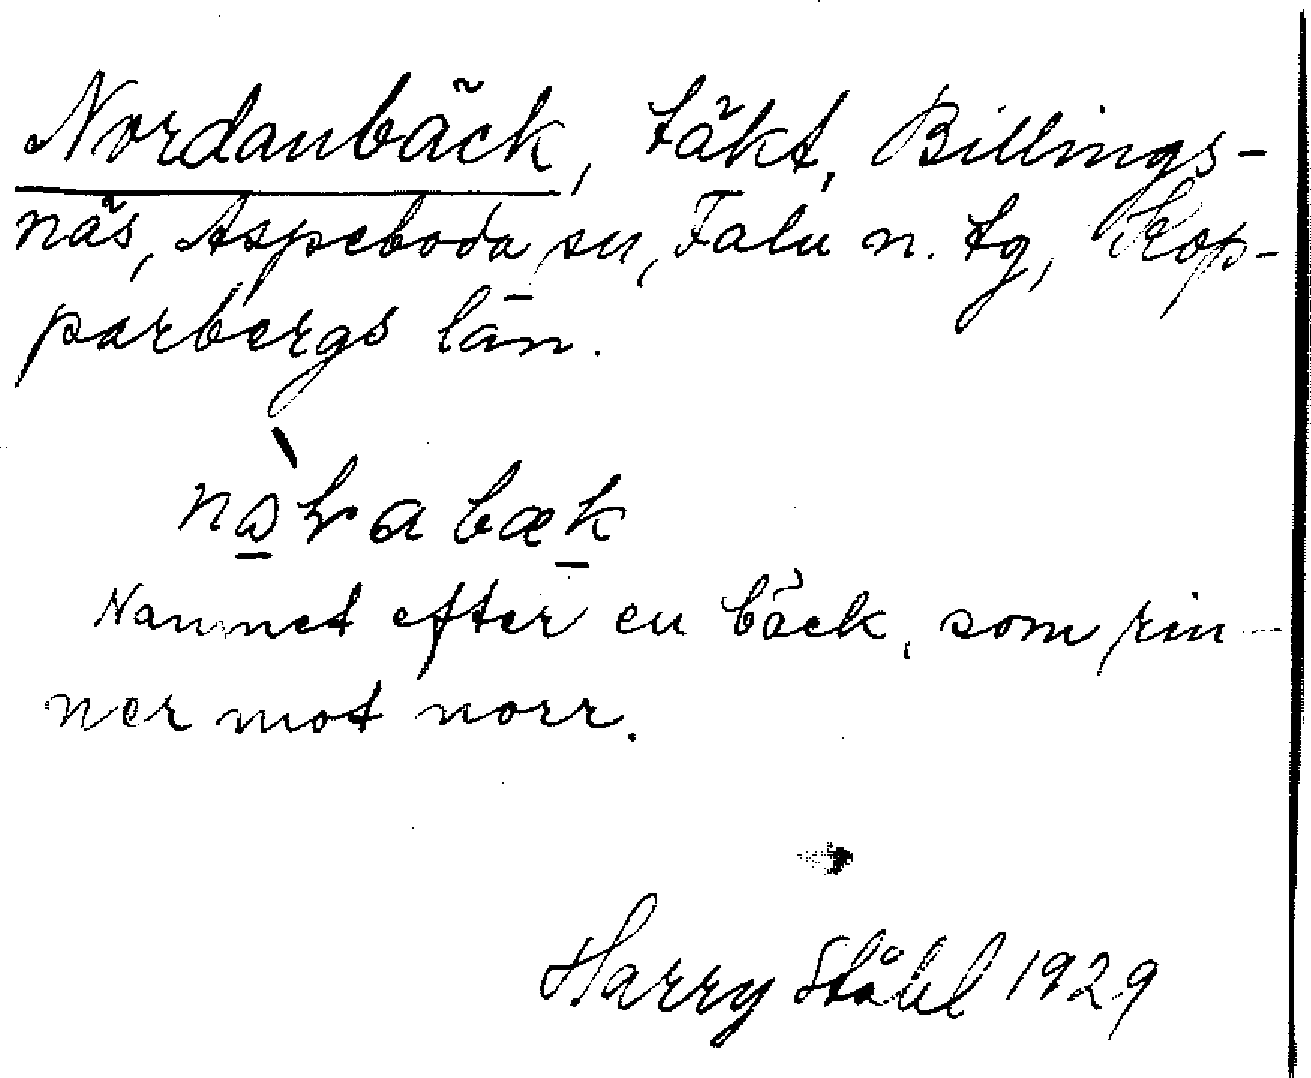 Nordanbäck, täkt, Billings-
näs, Aspeboda sn, Falu n. tg, Kop-
parbergs län.
Namnet efter en bäck, som rin-
ner mot norr.
Harry Ståhl 1929